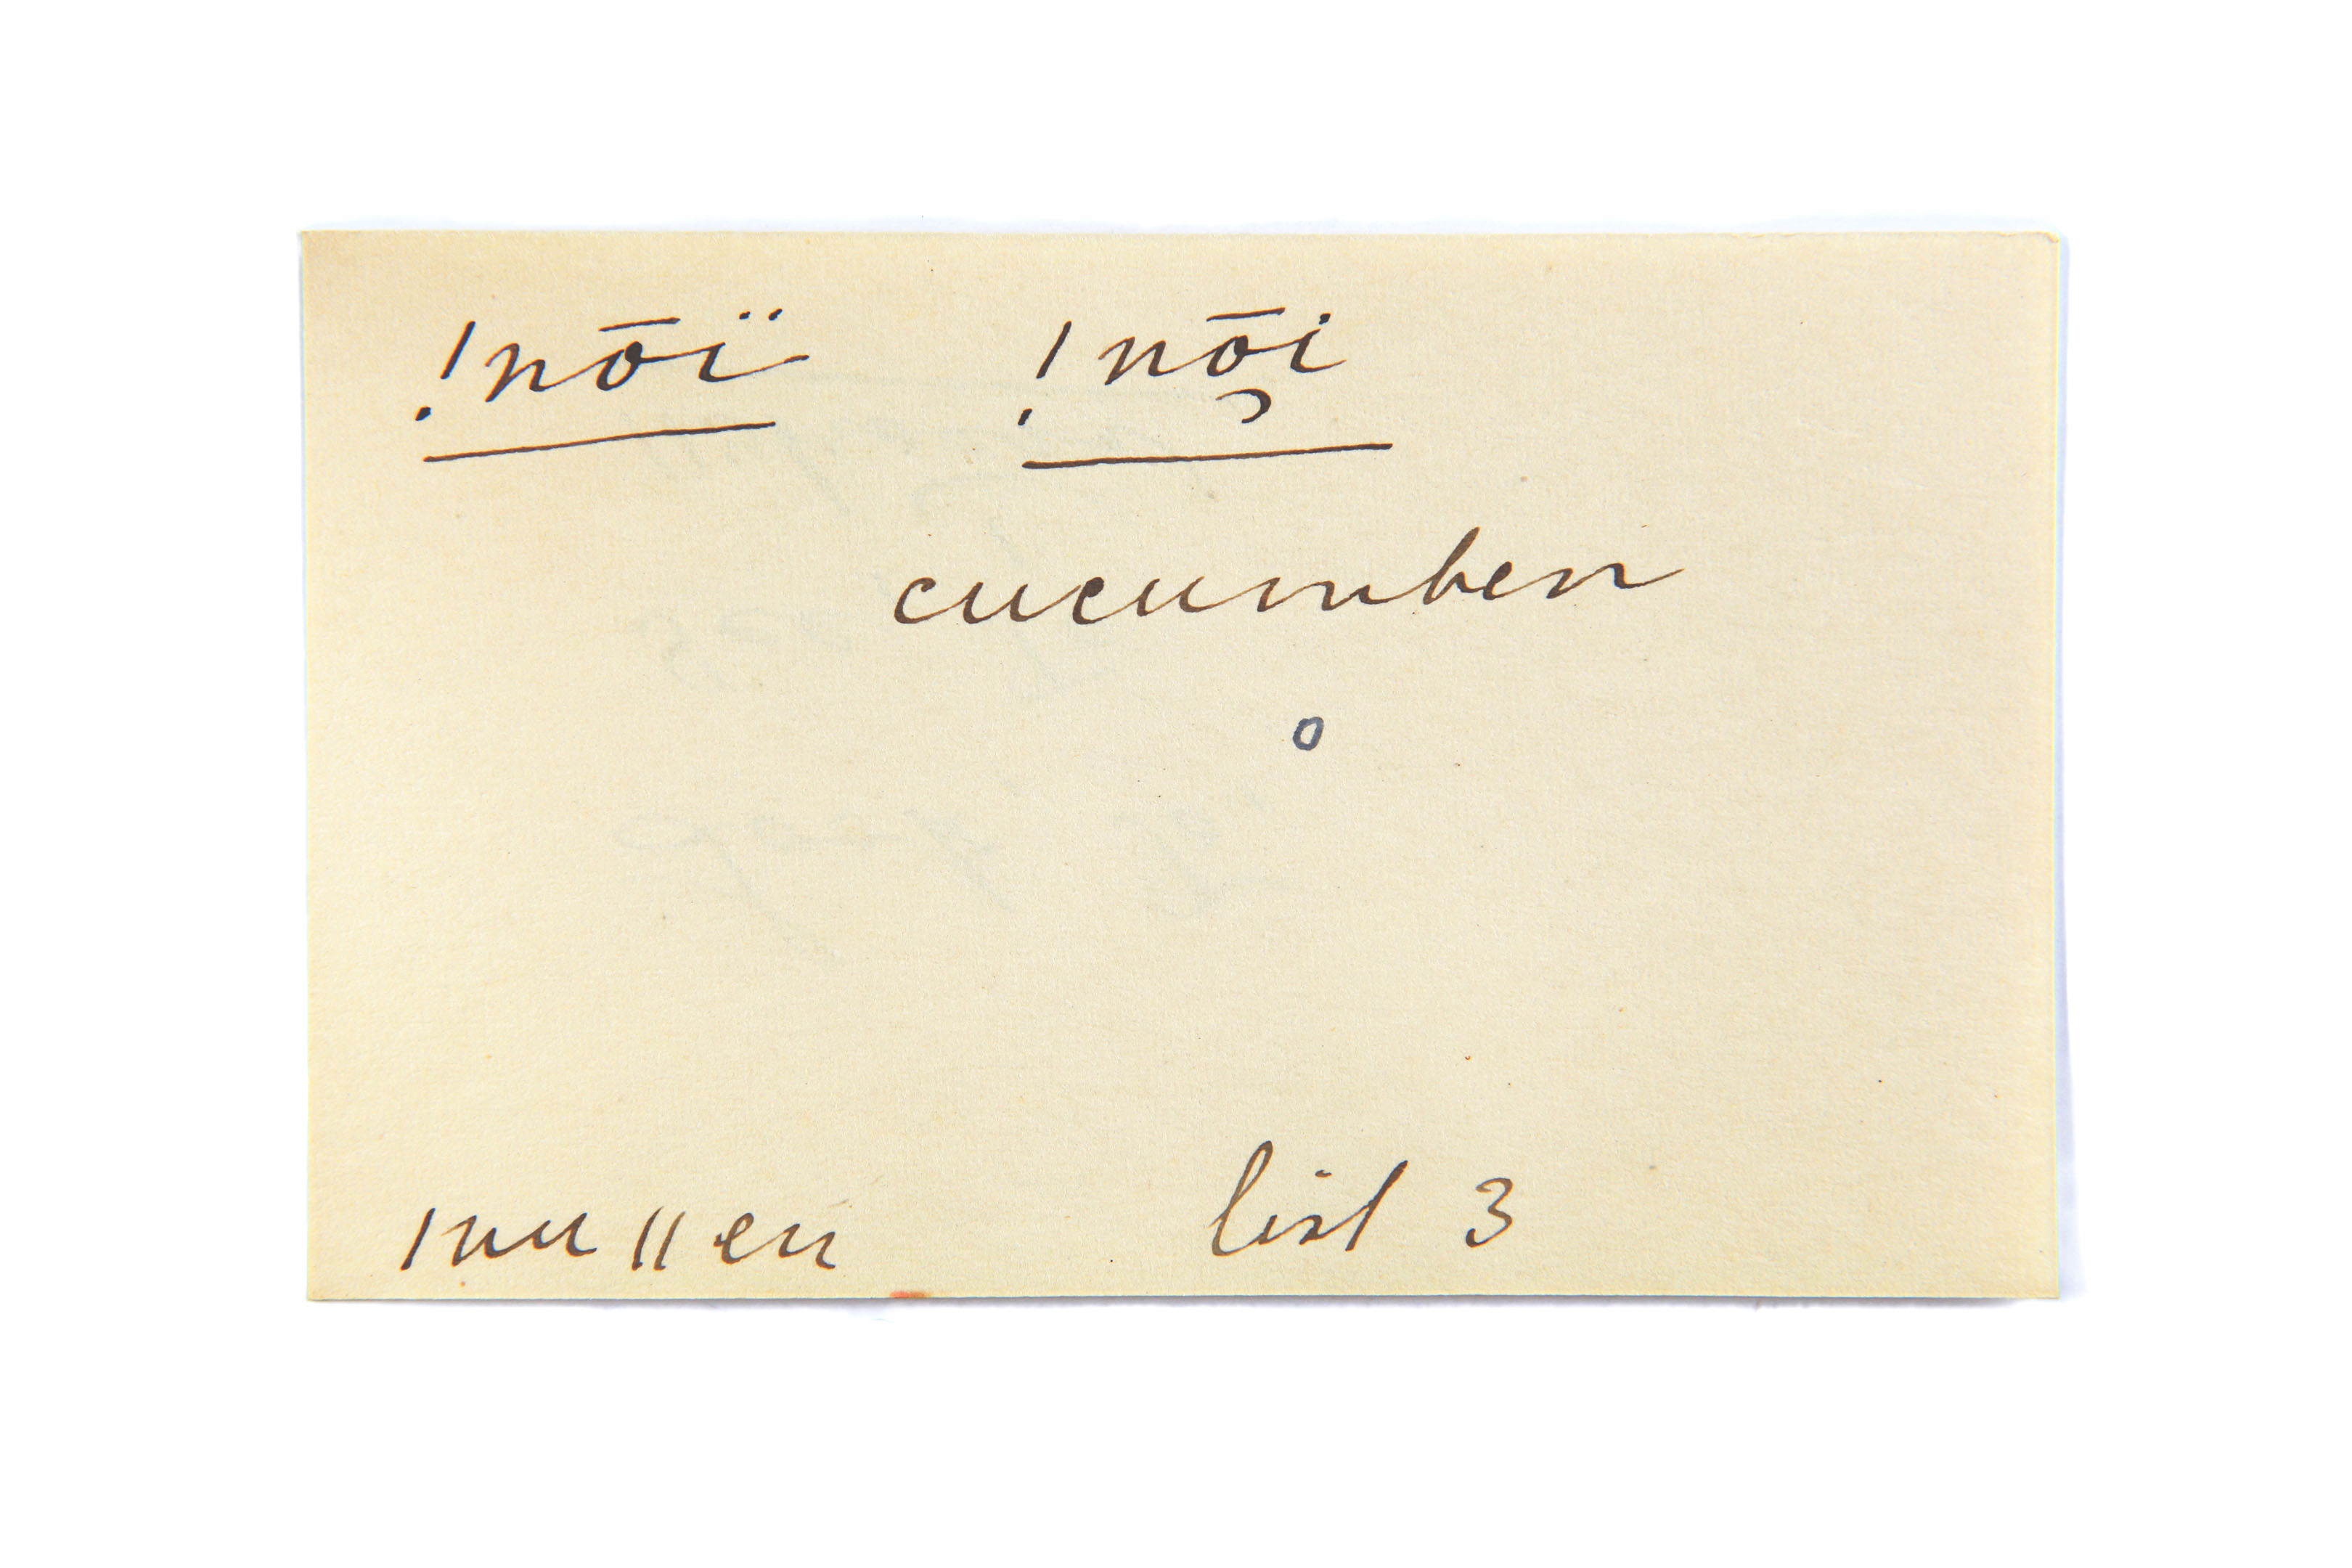 !nōï !nō̜i
cucumber
o
ǀnuǁen list 3